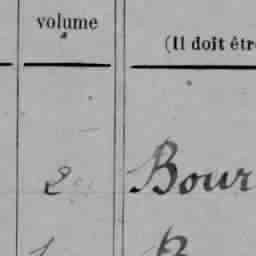 volume
(Il doit êtr
2 Bour